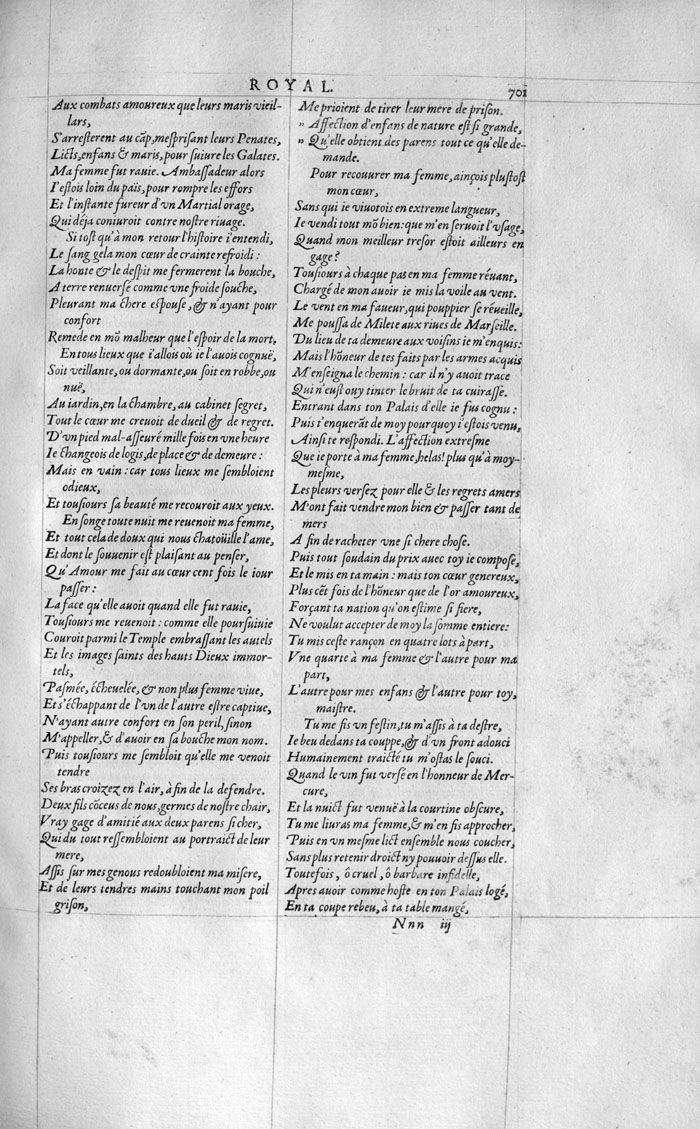 ROYAL.
701
Aux combats amoureux que leurs maris vieil-
lars,
S'arresterent au cãp, mesprisant leurs Penates,
Licts, enfans & maris, pour suiure les Galates.
Ma femme fut rauie. Ambassadeur alors
I'estois loin du païs, pour rompre les effors
Et l'instante fureur d'vn Martial orage,
Qui déja coniuroit contre nostre riuage.
Si tost qu'à mon retour l'histoire i'entendi,
Le sang gela mon cœur de crainte refroidi:
La honte & le despit me fermerent la bouche,
A terre renuersé comme vne froide souche,
Pleurant ma chere espouse, & n'ayant pour
confort
Remede en mõ malheur que l'espoir de la mort,
En tous lieux que i'allois où ie l'auois cognuë,
Soit veillante, ou dormante, ou soit en robbe, ou
nuë,
Au iardin, en la chambre, au cabinet segret,
Tout le cœur me creuoit de dueil & de regret.
D'vn pied mal-asseuré mille fois en vne heure
Ie changeois de logis, de place & de demeure:
Mais en vain: car tous lieux me sembloient
odieux,
Et tousiours sa beauté me recouroit aux yeux.
En songe toute nuit me reuenoit ma femme,
Et tout cela de doux qui nous chatoüille l'ame,
Et dont le souuenir est plaisant au penser,
Qu'Amour me fait au cœur cent fois le iour
passer:
La face qu'elle auoit quand elle fut rauie,
Tousiours me reuenoit: comme elle poursuiuie
Couroit parmi le Temple embrassant les autels
Et les images saints des hauts Dieux immor-
tels,
Pasmée, écheuelée, & non plus femme viue,
Et s'échappant de l'vn de l'autre estre captiue,
N'ayant autre confort en son peril, sinon
M'appeller, & d'auoir en sa bouche mon nom.
Puis tousiours me sembloit qu'elle me venoit
tendre
Ses bras croizez en l'air, à fin de la defendre.
Deux fils cõceus de nous, germes de nostre chair,
Vray gage d'amitié aux deux parens si cher,
Qui du tout ressembloient au portraict de leur
mere,
Assis sur mes genous redoubloient ma misere,
Et de leurs tendres mains touchant mon poil
grison,
Me prioient de tirer leur mere de prison.
" Affection d'enfans de nature est si grande,
" Qu'elle obtient des parens tout ce qu'elle de-
mande.
Pour recouurer ma femme, ainçois plustost
mon cœur,
Sans qui ie viuotois en extreme langueur,
Ie vendi tout mõ bien: que m'en seruoit l'vsage,
Quand mon meilleur tresor estoit ailleurs en
gage?
Tousiours à chaque pas en ma femme réuant,
Chargé de mon auoir ie mis la voile au vent.
Le vent en ma faueur, qui pouppier se réueille,
Me poussa de Milete aux riues de Marseille.
Du lieu de ta demeure aux voisins ie m'enquis:
Mais l'hõneur de tes faits par les armes acquis
M'enseigna le chemin: car il n'y auoit trace
Qui n'eust ouy tinter le bruit de ta cuirasse.
Entrant dans ton Palais d'elle ie fus cognu:
Puis t'enquerãt de moy pourquoy i'estois venu,
Ainsi te respondi. L'affection extresme
Que ie porte à ma femme, helas! plus qu'à moy-
mesme,
Les pleurs versez pour elle & les regrets amers
M'ont fait vendre mon bien & passer tant de
mers
A fin de racheter vne si chere chose.
Puis tout soudain du prix auec toy ie compose,
Et le mis en ta main: mais ton cœur genereux,
Plus cẽt fois de l'hõneur que de l'or amoureux,
Forçant ta nation qu'on estime si fiere,
Ne voulut accepter de moy la somme entiere:
Tu mis ceste rançon en quatre lots à part,
Vne quarte à ma femme & l'autre pour ma
part,
L'autre pour mes enfans & l'autre pour toy,
maistre.
Tu me fis vn festin, tu m'assis à ta destre,
Ie beu dedans ta couppe, & d'vn front adouci
Humainement traicté tu m'ostas le souci.
Quand le vin fut versé en l'honneur de Mer-
cure,
Et la nuict fut venuë à la courtine obscure,
Tu me liuras ma femme, & m'en fis approcher,
Puis en vn mesme lict ensemble nous coucher,
Sans plus retenir droict ny pouuoir dessus elle.
Toutefois, ô cruel, ô barbare infidelle,
Apres auoir comme hoste en ton Palais logé,
En ta coupe rebeu, à ta table mangé,
Nnn iij